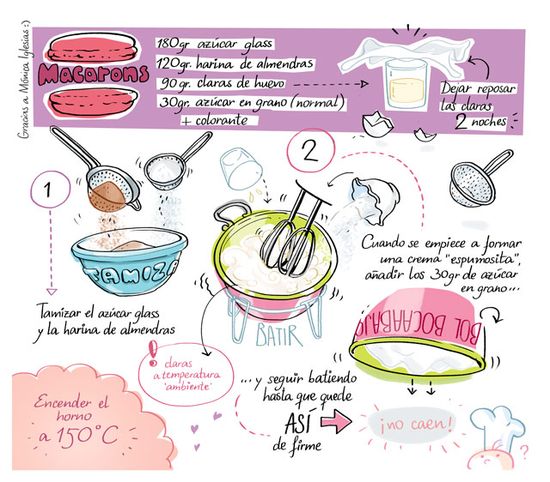 Gracias a Mónica Iglesias :)
Macarons
180gr azúcar glass
120gr. harina de almendras
90 gr. claras de huevo
30gr. azúcar en grano (normal)
+ colorante
Dejar reposar
las claras
2 noches
1
TAMIZA
Tamizar el azúcar glass
y la harina de almendras
2
BATIR
! claras
a temperatura
"ambiente"
Cuando se empiece a formar
una crema "espumosita",
añadir los 30gr de azúcar
en grano...
BOL BOCAABAJO
...y seguir batiendo
hasta que quede
ASÍ
de firme
¡no caen!
Encender el
horno
a 150°C
?